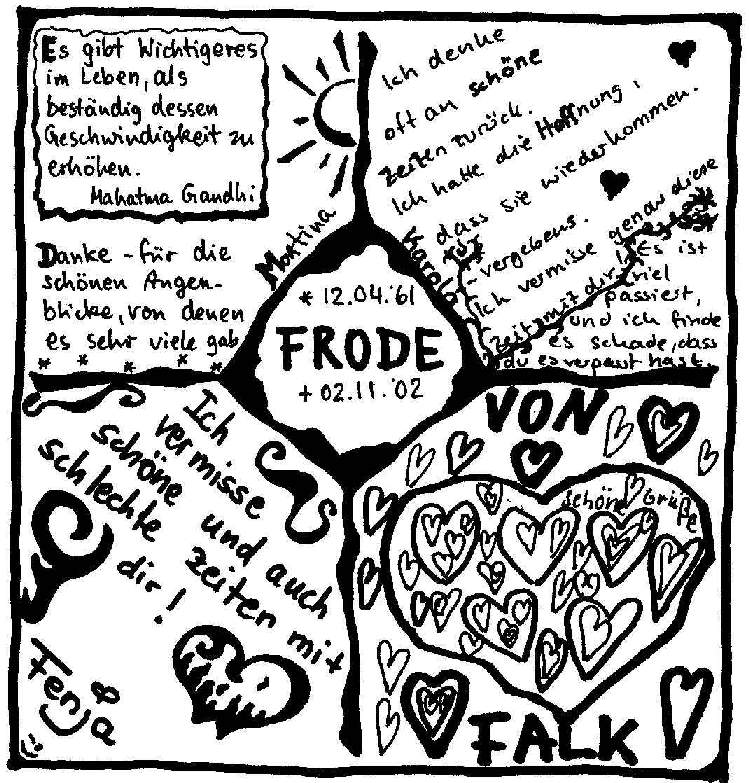 Es gibt Wichtigeres
im Leben, als
beständig dessen
Geschwindigkeit zu
erhöhen.
Mahatma Gandhi
Danke - für die
schönen Augen-
blicke, von denen
es sehr viele gab
* * * * *
Martina
Ich denke
oft an schöne
Zeiten zurück.
Ich hatte die Hoffnung,
dass sie wiederkommen.
- vergebens.
Ich vermisse genau diese
Zeit mit dir!
Es ist
viel
passiert,
und ich finde
es schade, dass
du es verpasst hast.
Karola
* 12.04.'61
FRODE
+ 02.11.'02
Ich
vermisse
schöne und auch
schlechte Zeiten mit
dir!
Fenja
VON
schöne Grüße
FALK